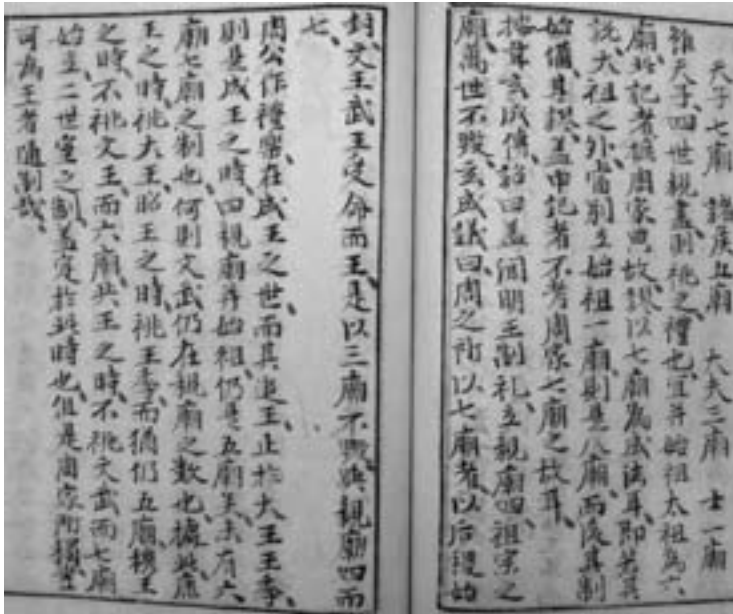 天子七廟 諸侯五廟 大夫三廟 士一廟
雖天子四世親盡則祧之禮也宜并始祖太祖為六
廟此記者據周家典故謬以七廟為成法耳即若其
說大祖之外當別立始祖一廟則是八廟而後其制
始備其誤盖由記者不考周家七廟之故耳
據韋玄成傳詔曰盖聞明王制礼立親廟四祖宗之
廟萬世不毀玄成議曰周之所以七廟者以后稷始
封文王武王受命而王是以三廟不毀與親廟四而
七
周公作禮樂在成王之世而其追王止於大王王季
則是成王之時四親廟并始祖仍是五廟矣未有六
廟七廟之制也何則文武仍在親廟之數也據此康
王之時祧大王昭王之時祧王季而猶仍五廟穆王
之時不祧文王而六廟共王之時不祧文武而七廟
始立二世室之制盖定於此時也但是周家所損益
可為王者隨制哉